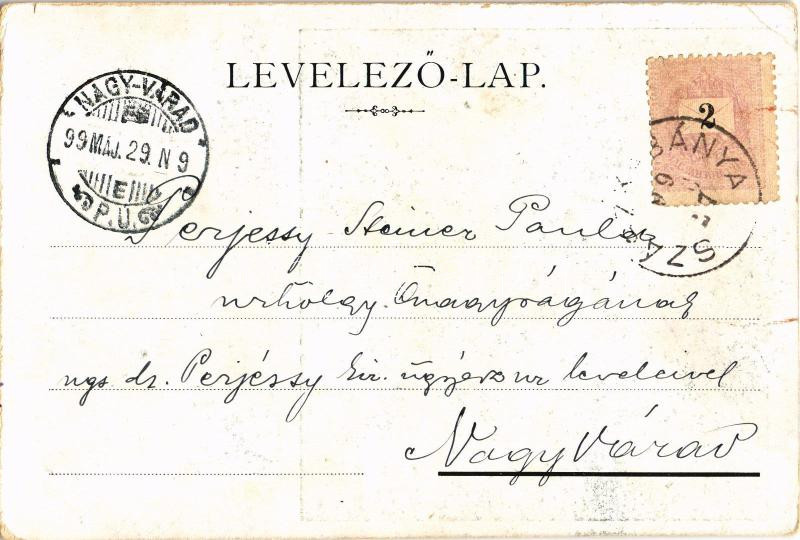 LEVELEZŐ-LAP.
NAGY-VÁRAD
99 MÁJ. 29. N 9
E
P.U.
2
BÁNYA
SZA
Perjessy Steiner Paula
úrhölgy Őnagyságának
ngs dr. Perjéssy kir. ügyész úr leveleivel
NagyVárad